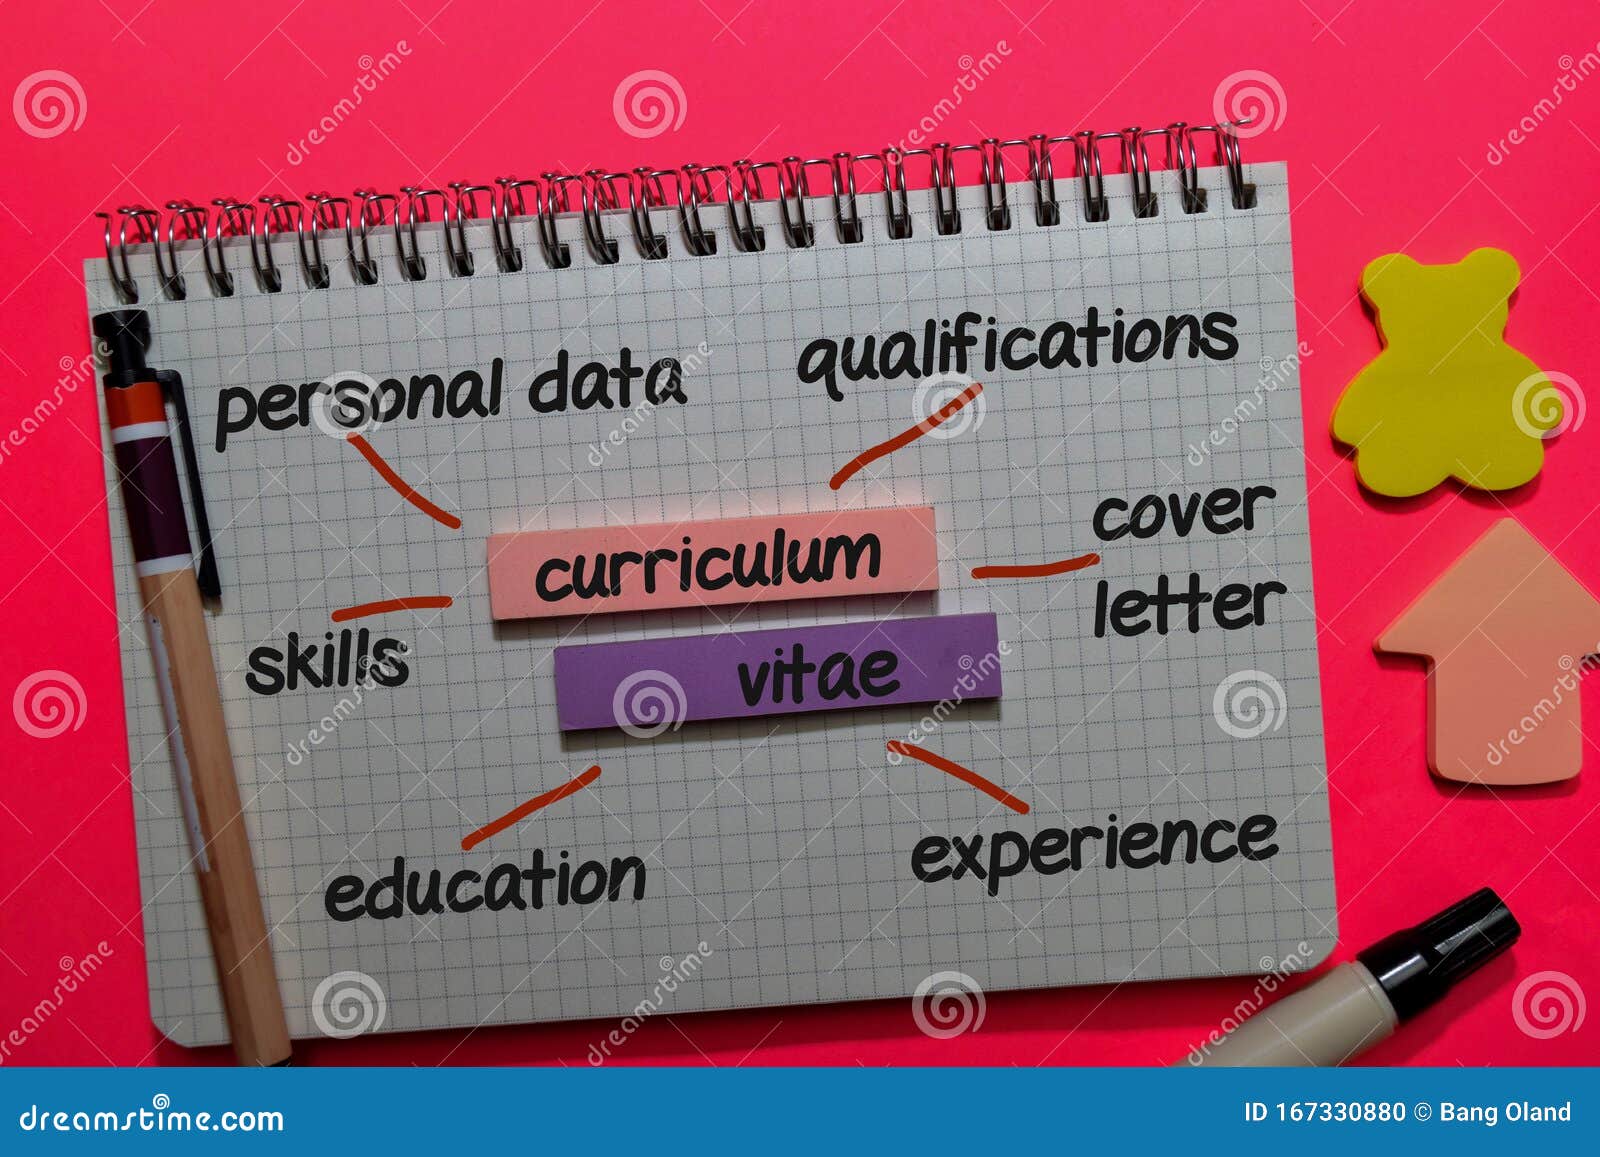 personal data
qualifications
curriculum
vitae
cover
letter
skills
education
experience
dreamstime
dreamstime.com
ID 167330880 © Bang Oland